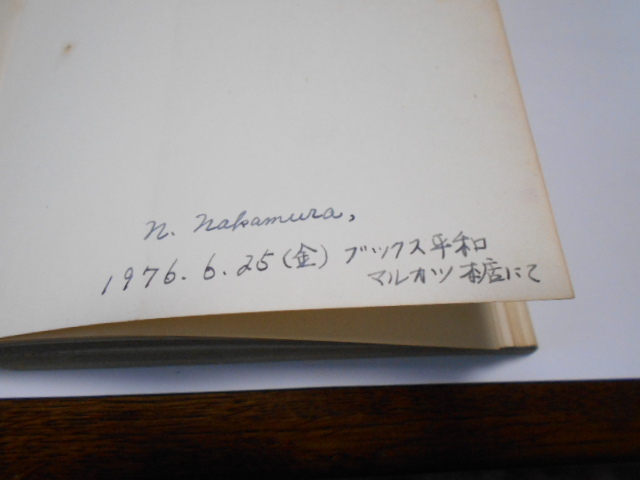 N. Nakamura,
1976. 6. 25 (金) ブックス平和
マルカツ本店にて